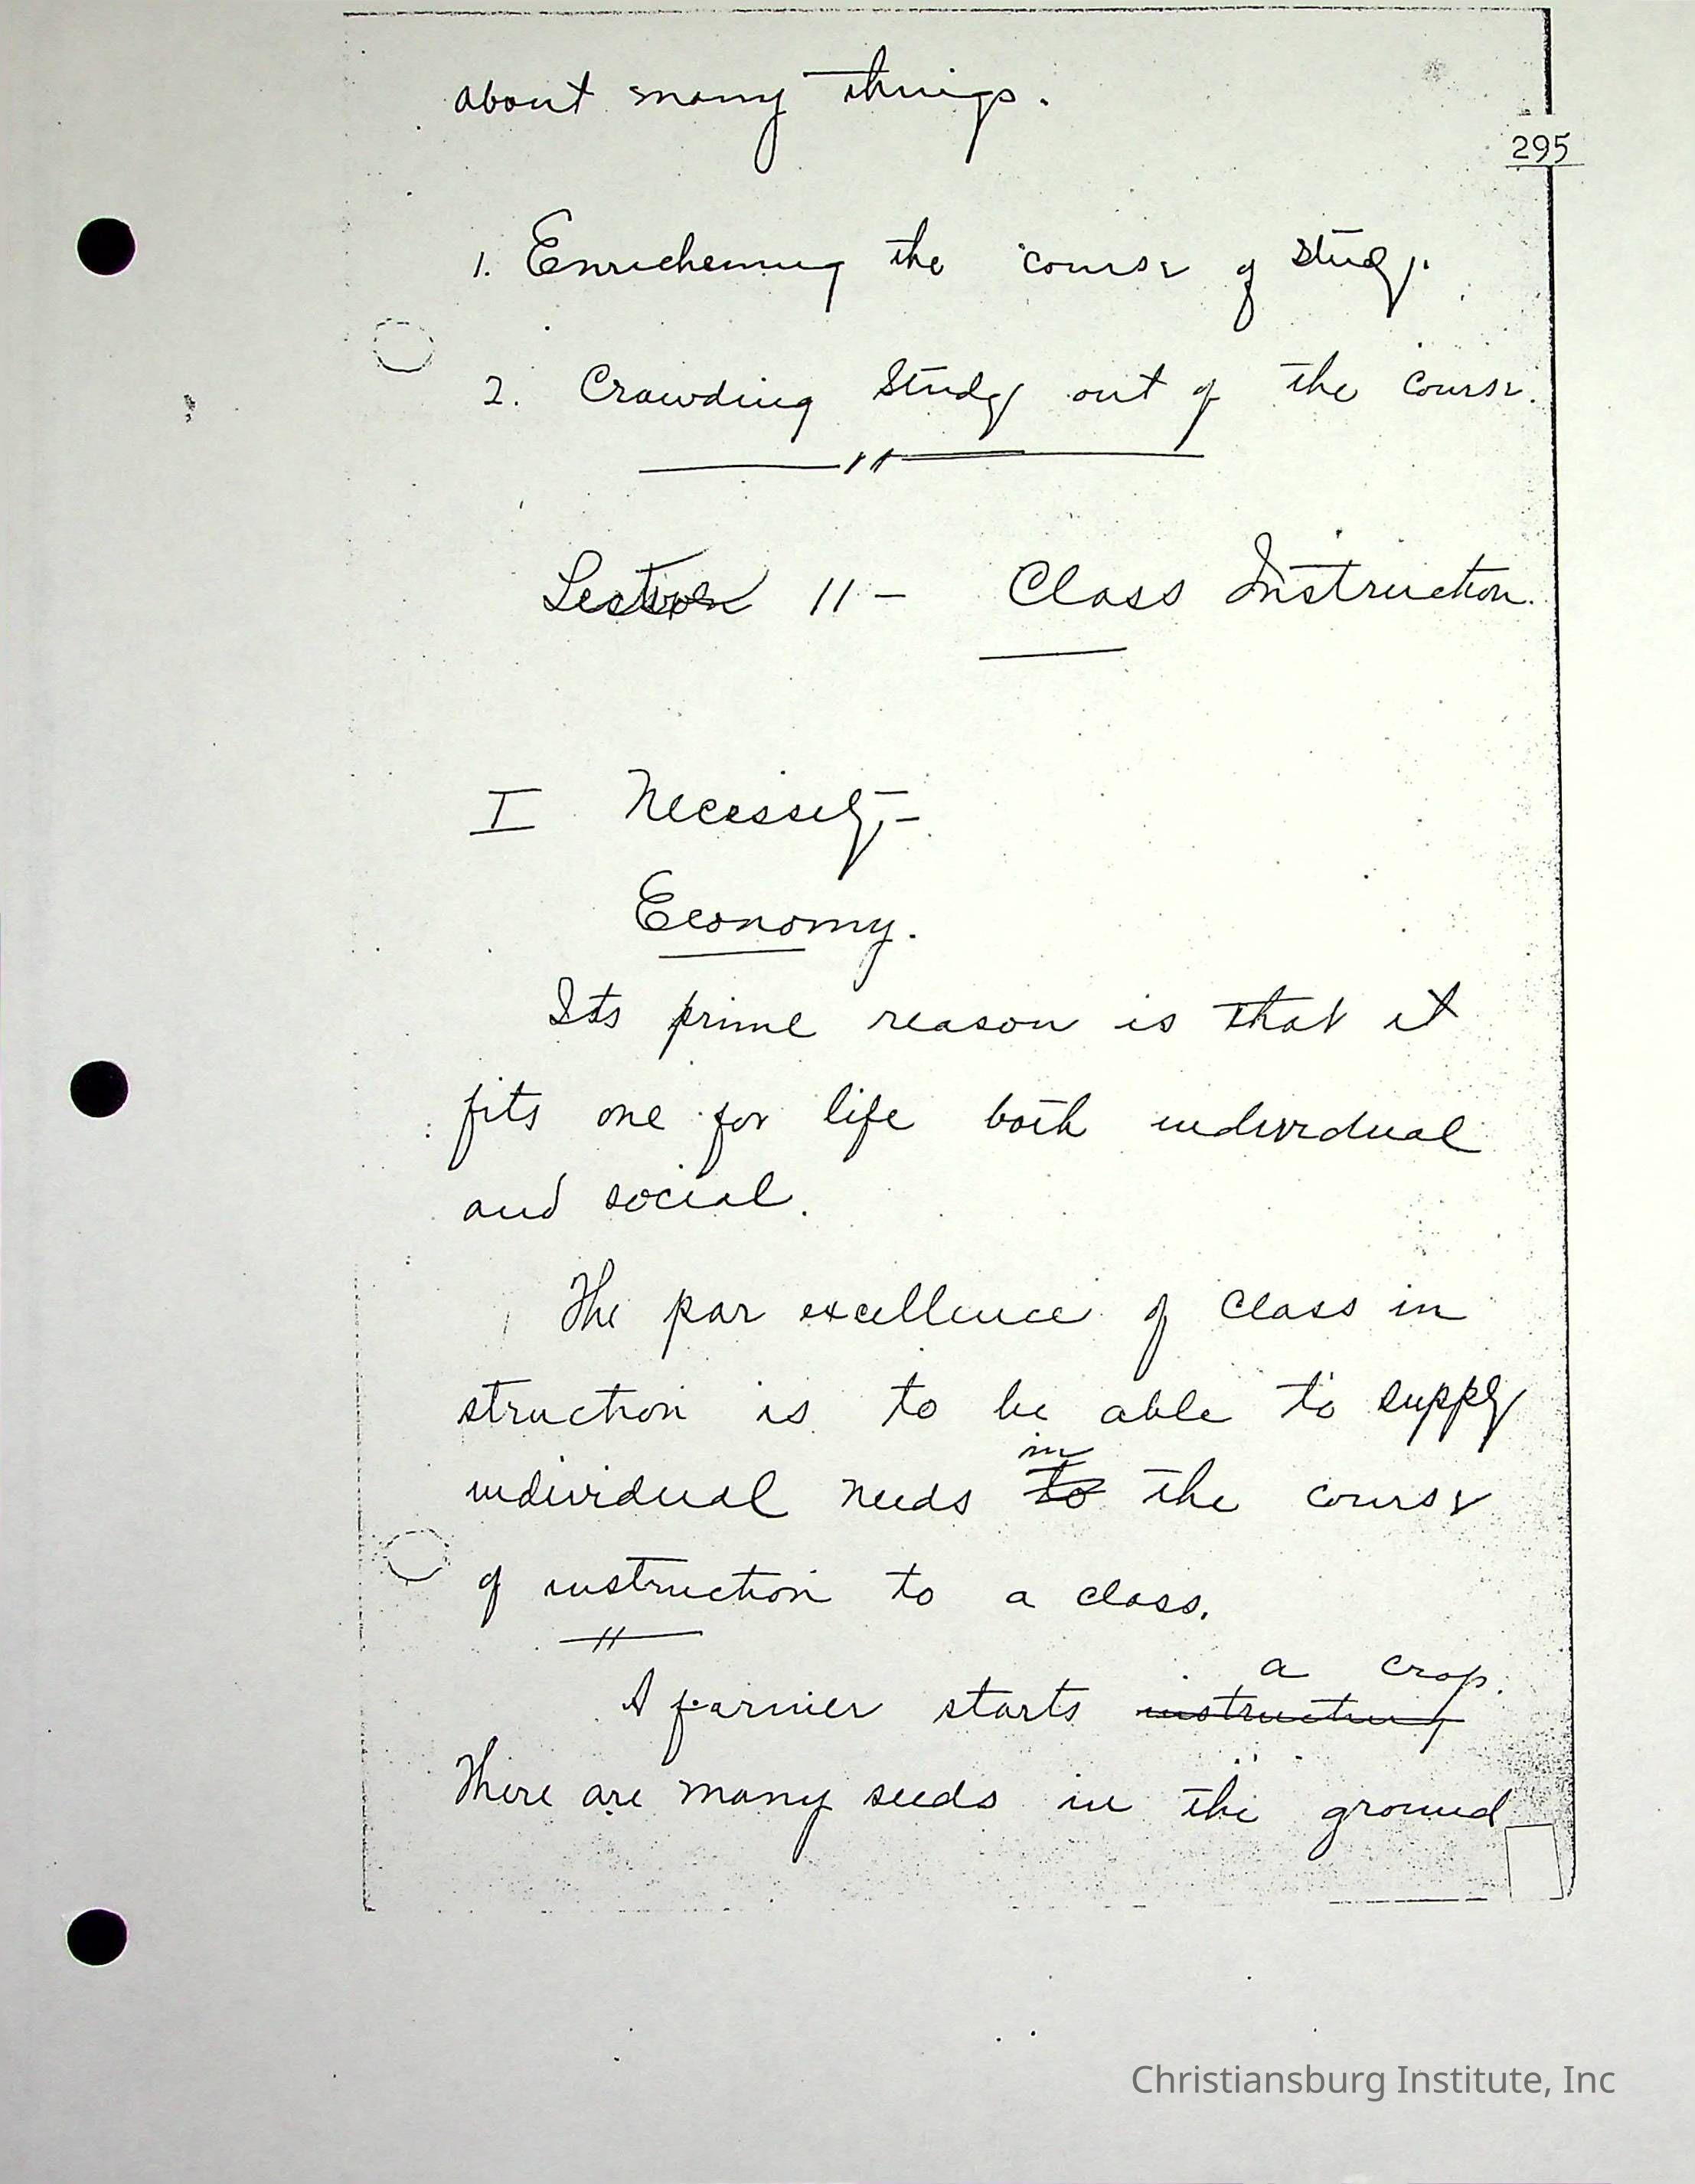 about many things.
295
1. Enrichening the course of study.
2. Crowding study out of the course.
11 - Class Instruction.
I Necessity,-
Economy.
Its prime reason is that it
fits one for life both individual
and social.
The par excellence of class in
struction is to be able to supply
in
individual needs to the course
of instruction to a class.
a crop.
A farmer starts instructing
There are many seeds in the ground
Christiansburg Institute, Inc